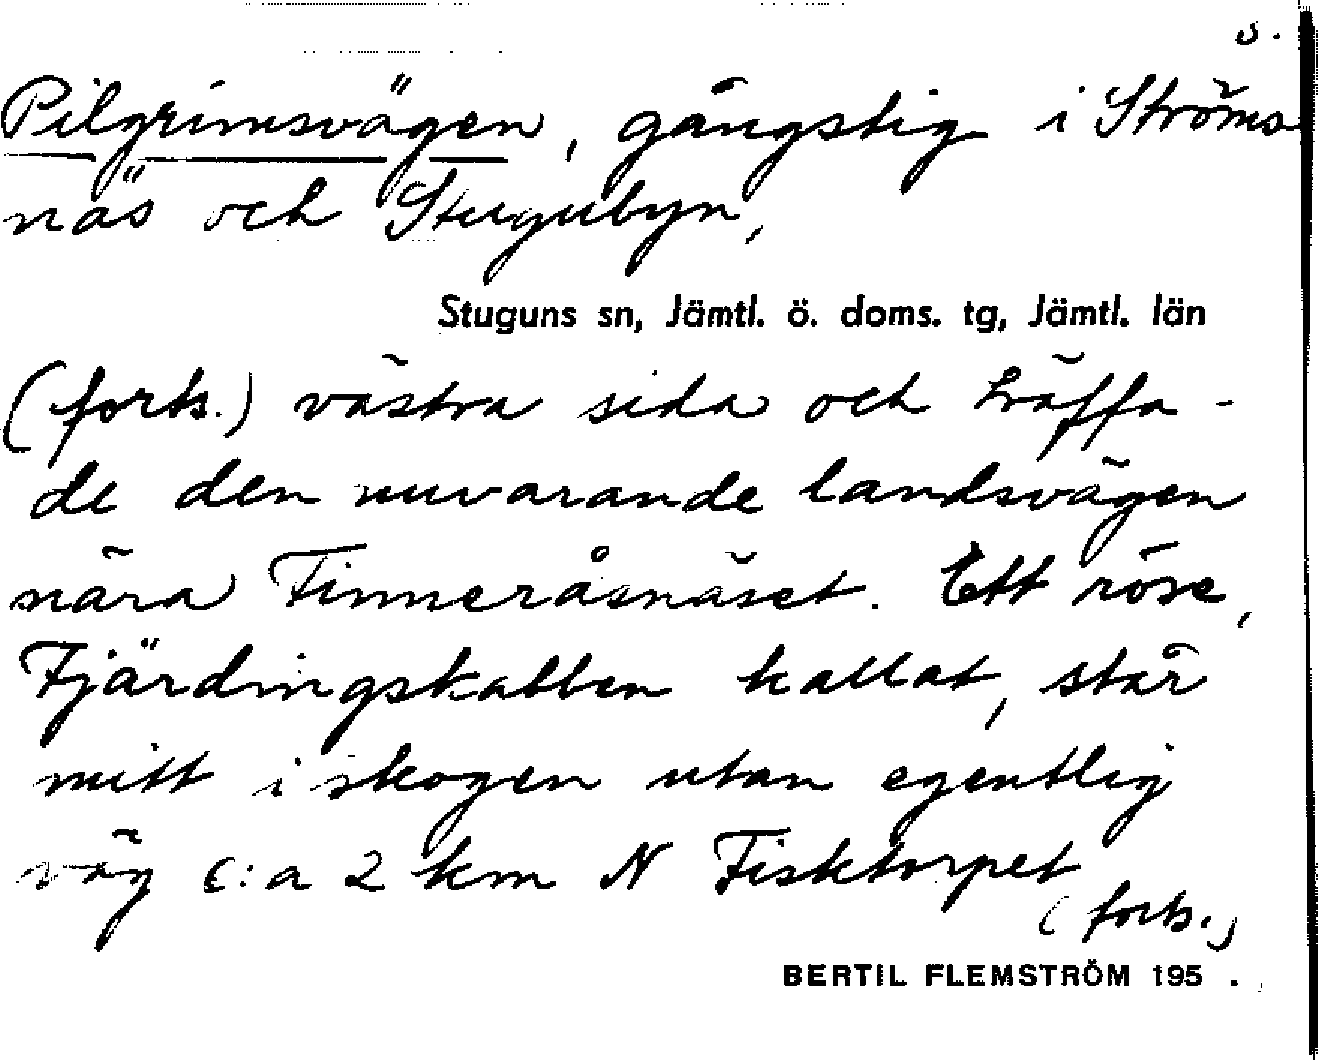 s.
Pilgrimsvägen, gångstig i Ströms
näs och Stugubyn,
Stuguns sn, Jämtl. ö. doms. tg, Jämtl. län
(forts.) västra sida och träffa-
de den nuvarande landsvägen
nära Finneråsnäset. Ett röse,
Fjärdingskabben kallat, står
mitt i skogen utan egentlig
väg c:a 2 km N Fisktorpet
(forts.)
BERTIL FLEMSTRÖM 195 .